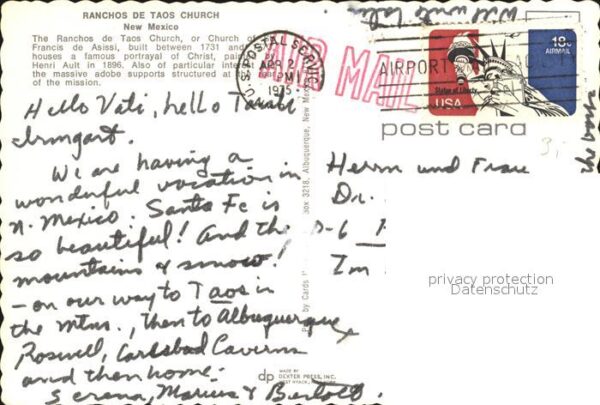 RANCHOS DE TAOS CHURCH
New Mexico
The Ranchos de Taos Church, or Church of
Francis de Asissi, built between 1731 and
houses a famous portrayal of Christ,
Henri Ault in 1896. Also of particular interest
the massive adobe supports structured at
of the mission.
Will write later
US POSTAL SERVICE
APR 2
PM
1975
AIR MAIL
AIRPORT
18c
AIRMAIL
Statue of Liberty
USA
post card
Hello Vati, hello Tante
Irmgart.
We are having a
wonderful vacation in
N. Mexico. Santa Fe is
so beautiful! And the
mountains & snow!
- on our way to Taos in
the mtns., then to Albuquerque
Roswell, Carlsbad Caverns
and then home.
Serena, Marius & Bertold.
Box 3218, Albuquerque, New Mexico
by Cards
Herrn und Frau
Dr.
D-6
Im
privacy protection
Datenschutz
dp
MADE BY
DEXTER PRESS, INC.
WEST NYACK, NEW YORK